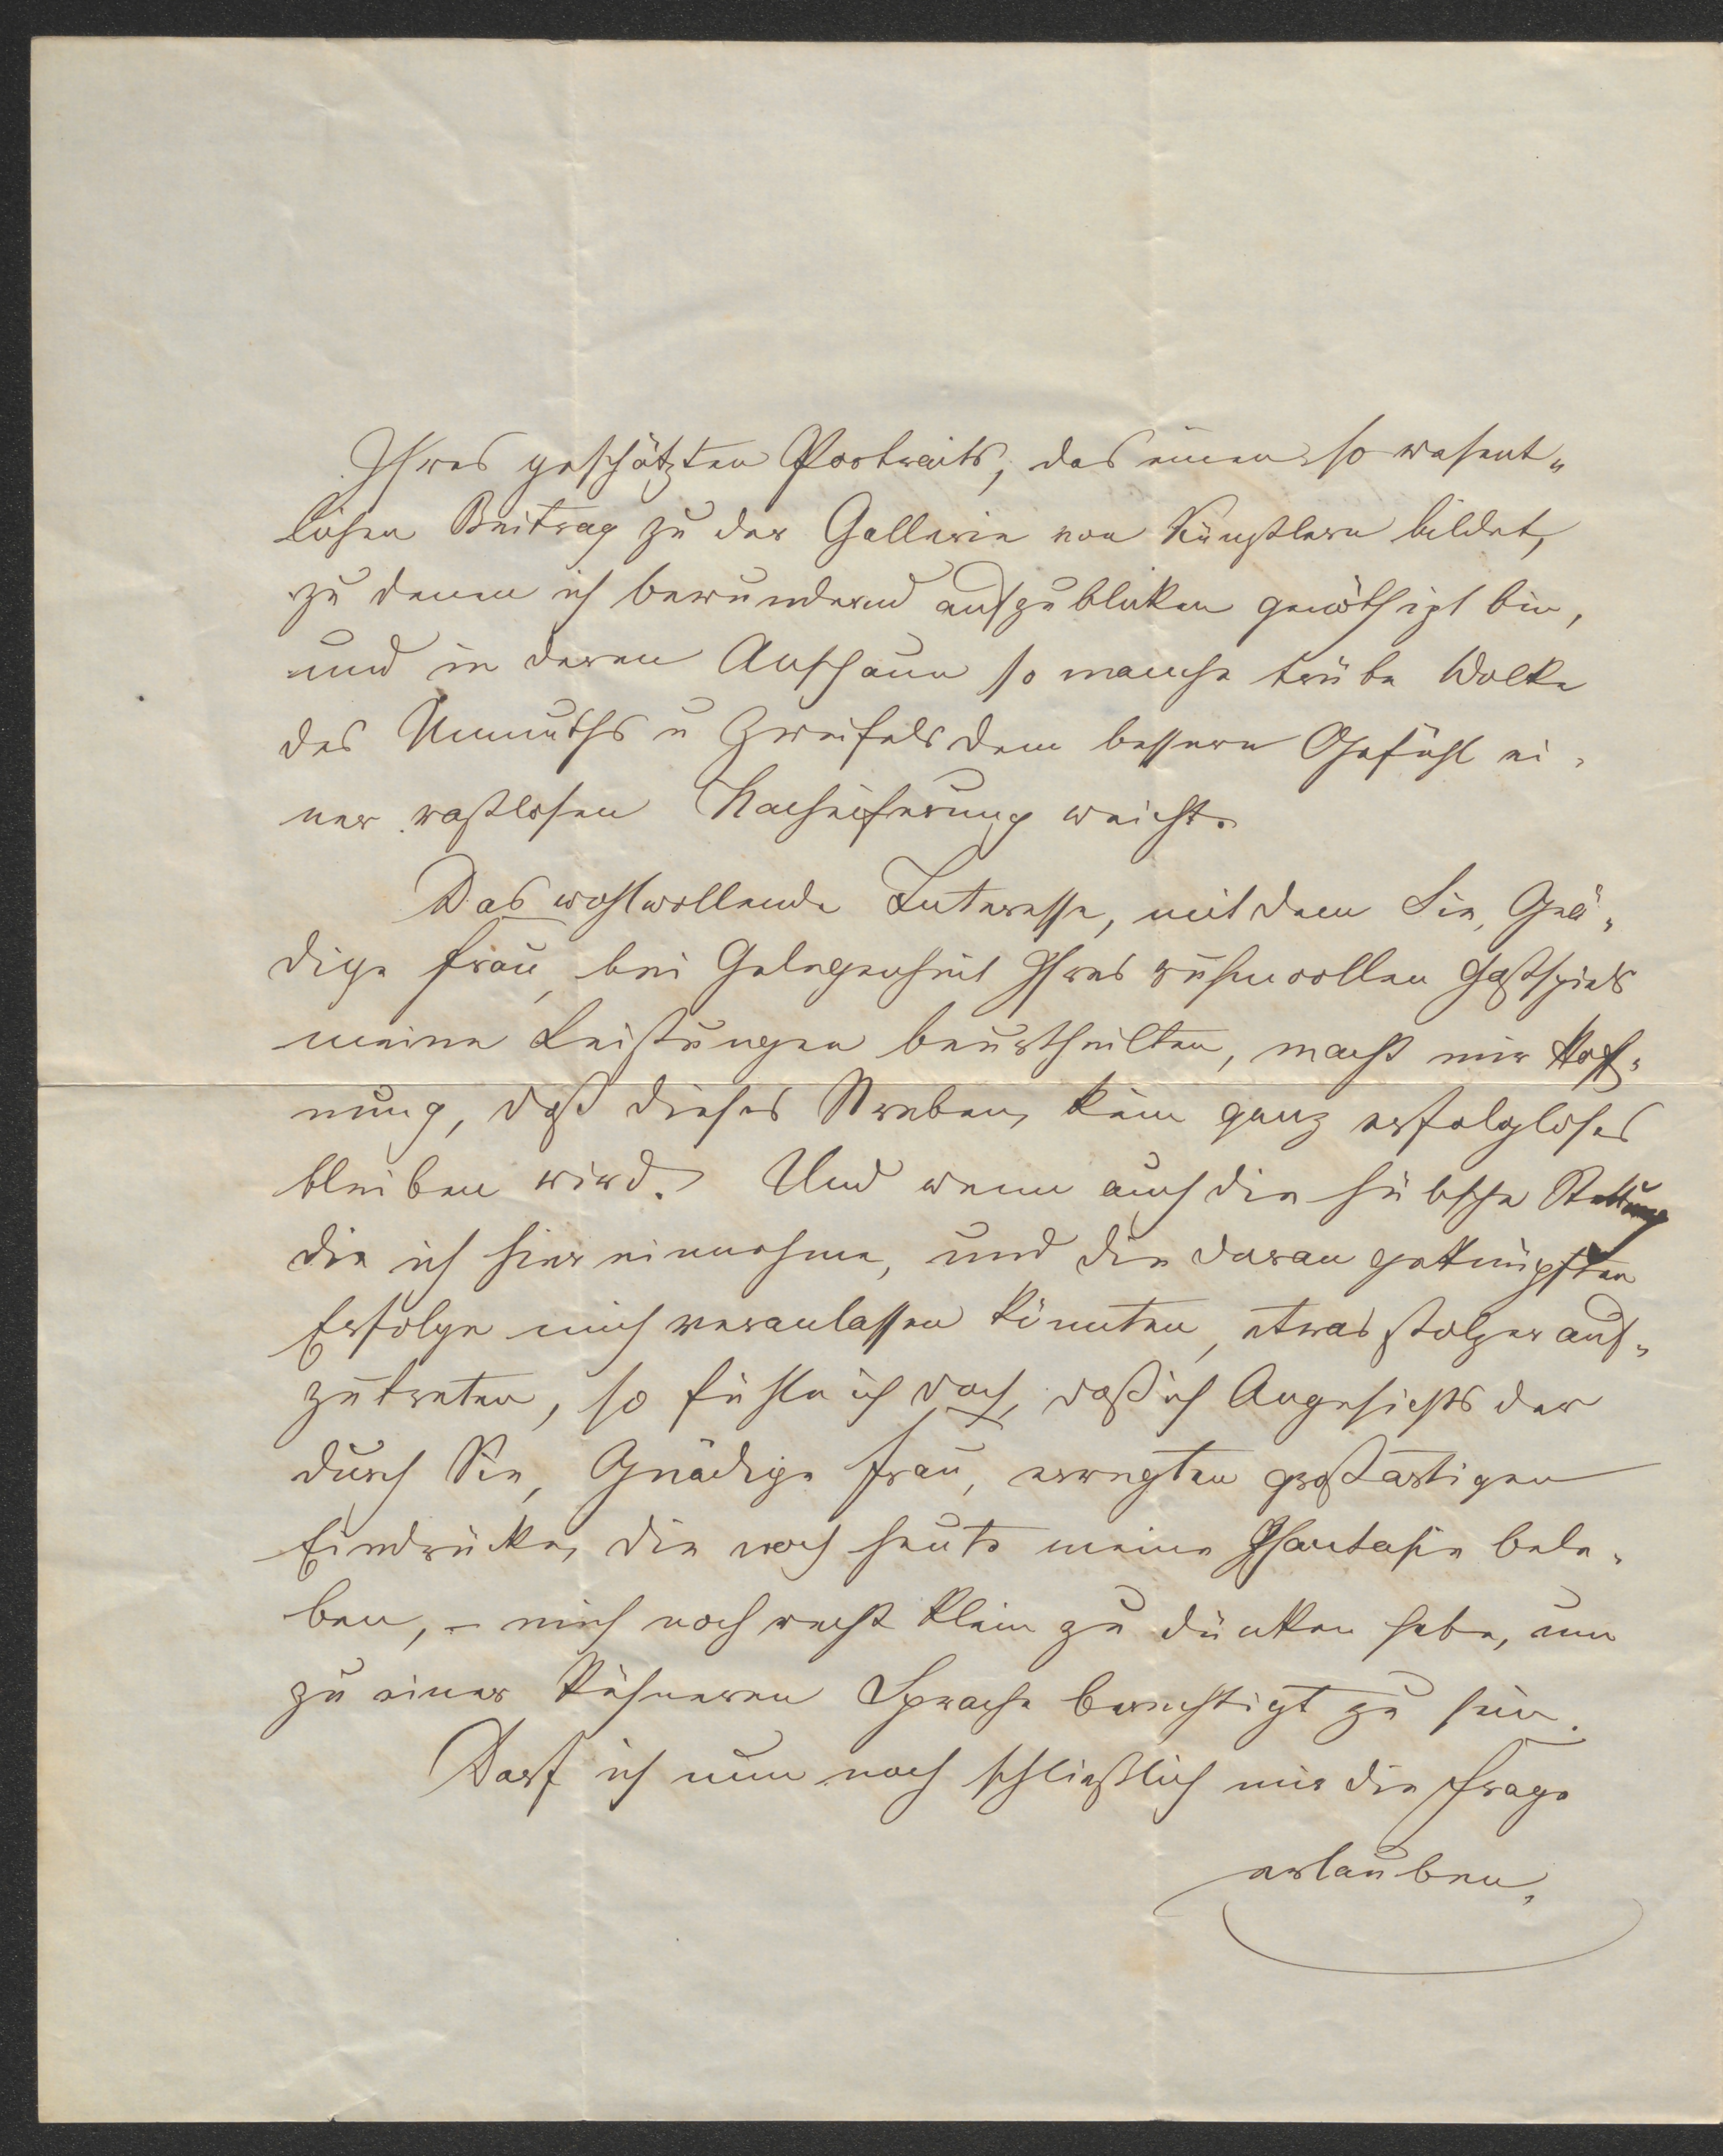 Ihres geschätzten Portraits, das einen so wesent„
lichen Beitrag zu der Gallerie von Künstlern bildet,
zu denen ich bewundernd aufzublicken genöthigt bin,
und in deren Anschaun so manche trübe Wolke
des Unmuths u Zweifels dem bessern Gefühl ei„
ner rastlosen Nacheiferung weicht.
Das wohlwollende Interesse, mit dem Sie, Gnä„
dige Frau, bei Gelegenheit Ihres ruhmvollen Gastspiels
meine Leistungen beurtheilten, macht mir Hoff„
nung, daß dieses Streben, kein ganz erfolgloses
bleiben wird. Und wenn auch die hübsche Stellung
die ich hier einnehme, und die daran geknüpften
Erfolge mich veranlassen könnten, etwas stolzer auf„
zutreten, so fühle ich doch, daß ich Angesichts der
durch Sie, Gnädige Frau, erregten großartigen
Eindrücke, die noch heute meine Phantasie bele„
ben, – mich noch recht klein zu dünken habe, um
zu einer kühneren Sprache berechtigt zu sein.
Darf ich nun noch schließlich mir die Frage
erlauben,